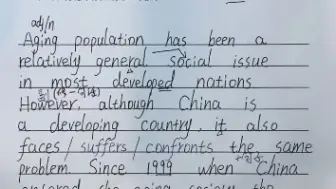 adj/n
Aging population has been a
relatively general social issue
in most developed nations
However, although China is
a developing country, it also
faces/suffers/confronts the same
problem. Since 1999 when China